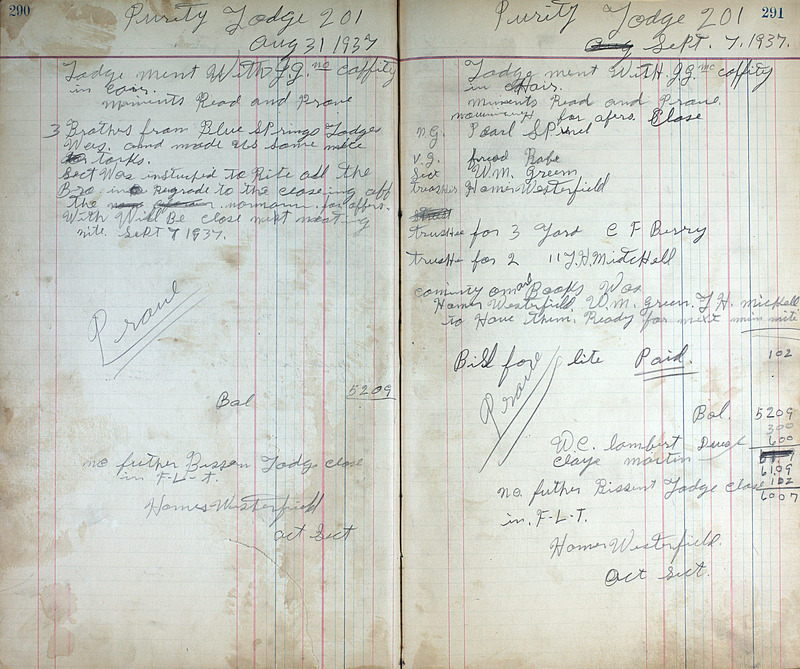 290
Purity Lodge 201
Aug 31 1937
Lodge ment With J.G. mc caffity
in Cair.
minients Read and Prove
3 Brothes from Blue SPrings Lodge
Was. and made us some nite
torks.
Sect Was instructed to Rite all the
Bro in regrade to the closeing off
the normann. for offers.
With Will Be close next meeting
nite. SePt 7 1937.
Prove
Bal 5209
no futher Bissen Lodge close
in F-L-T.
Homer Westerfield
act Sect
Purity Lodge 201 291
Sept. 7. 1937.
Lodge ment With. J.G. mc caffity
in Chair.
minients Read and Prove.
for afers. Close
n.g. Pearl
V.g. Babe
Sect W.M. Green
treasher Homer Westerfield
trushee for 3 Yard C F Berry
trushe for 2 " J.H. Mitchell
committy on Books Was
Homer Westerfield. W.M. Green. J.H. michell
to Have them. Ready for next nite
Bill for lite Paid. 102
Prove
Bal. 5209
300
W.C. lambert Dues 600
Claye martin
6109
no. futher Bissent Lodge Close 102
6007
in. F-L-T.
Homer Westerfield.
act Sect.